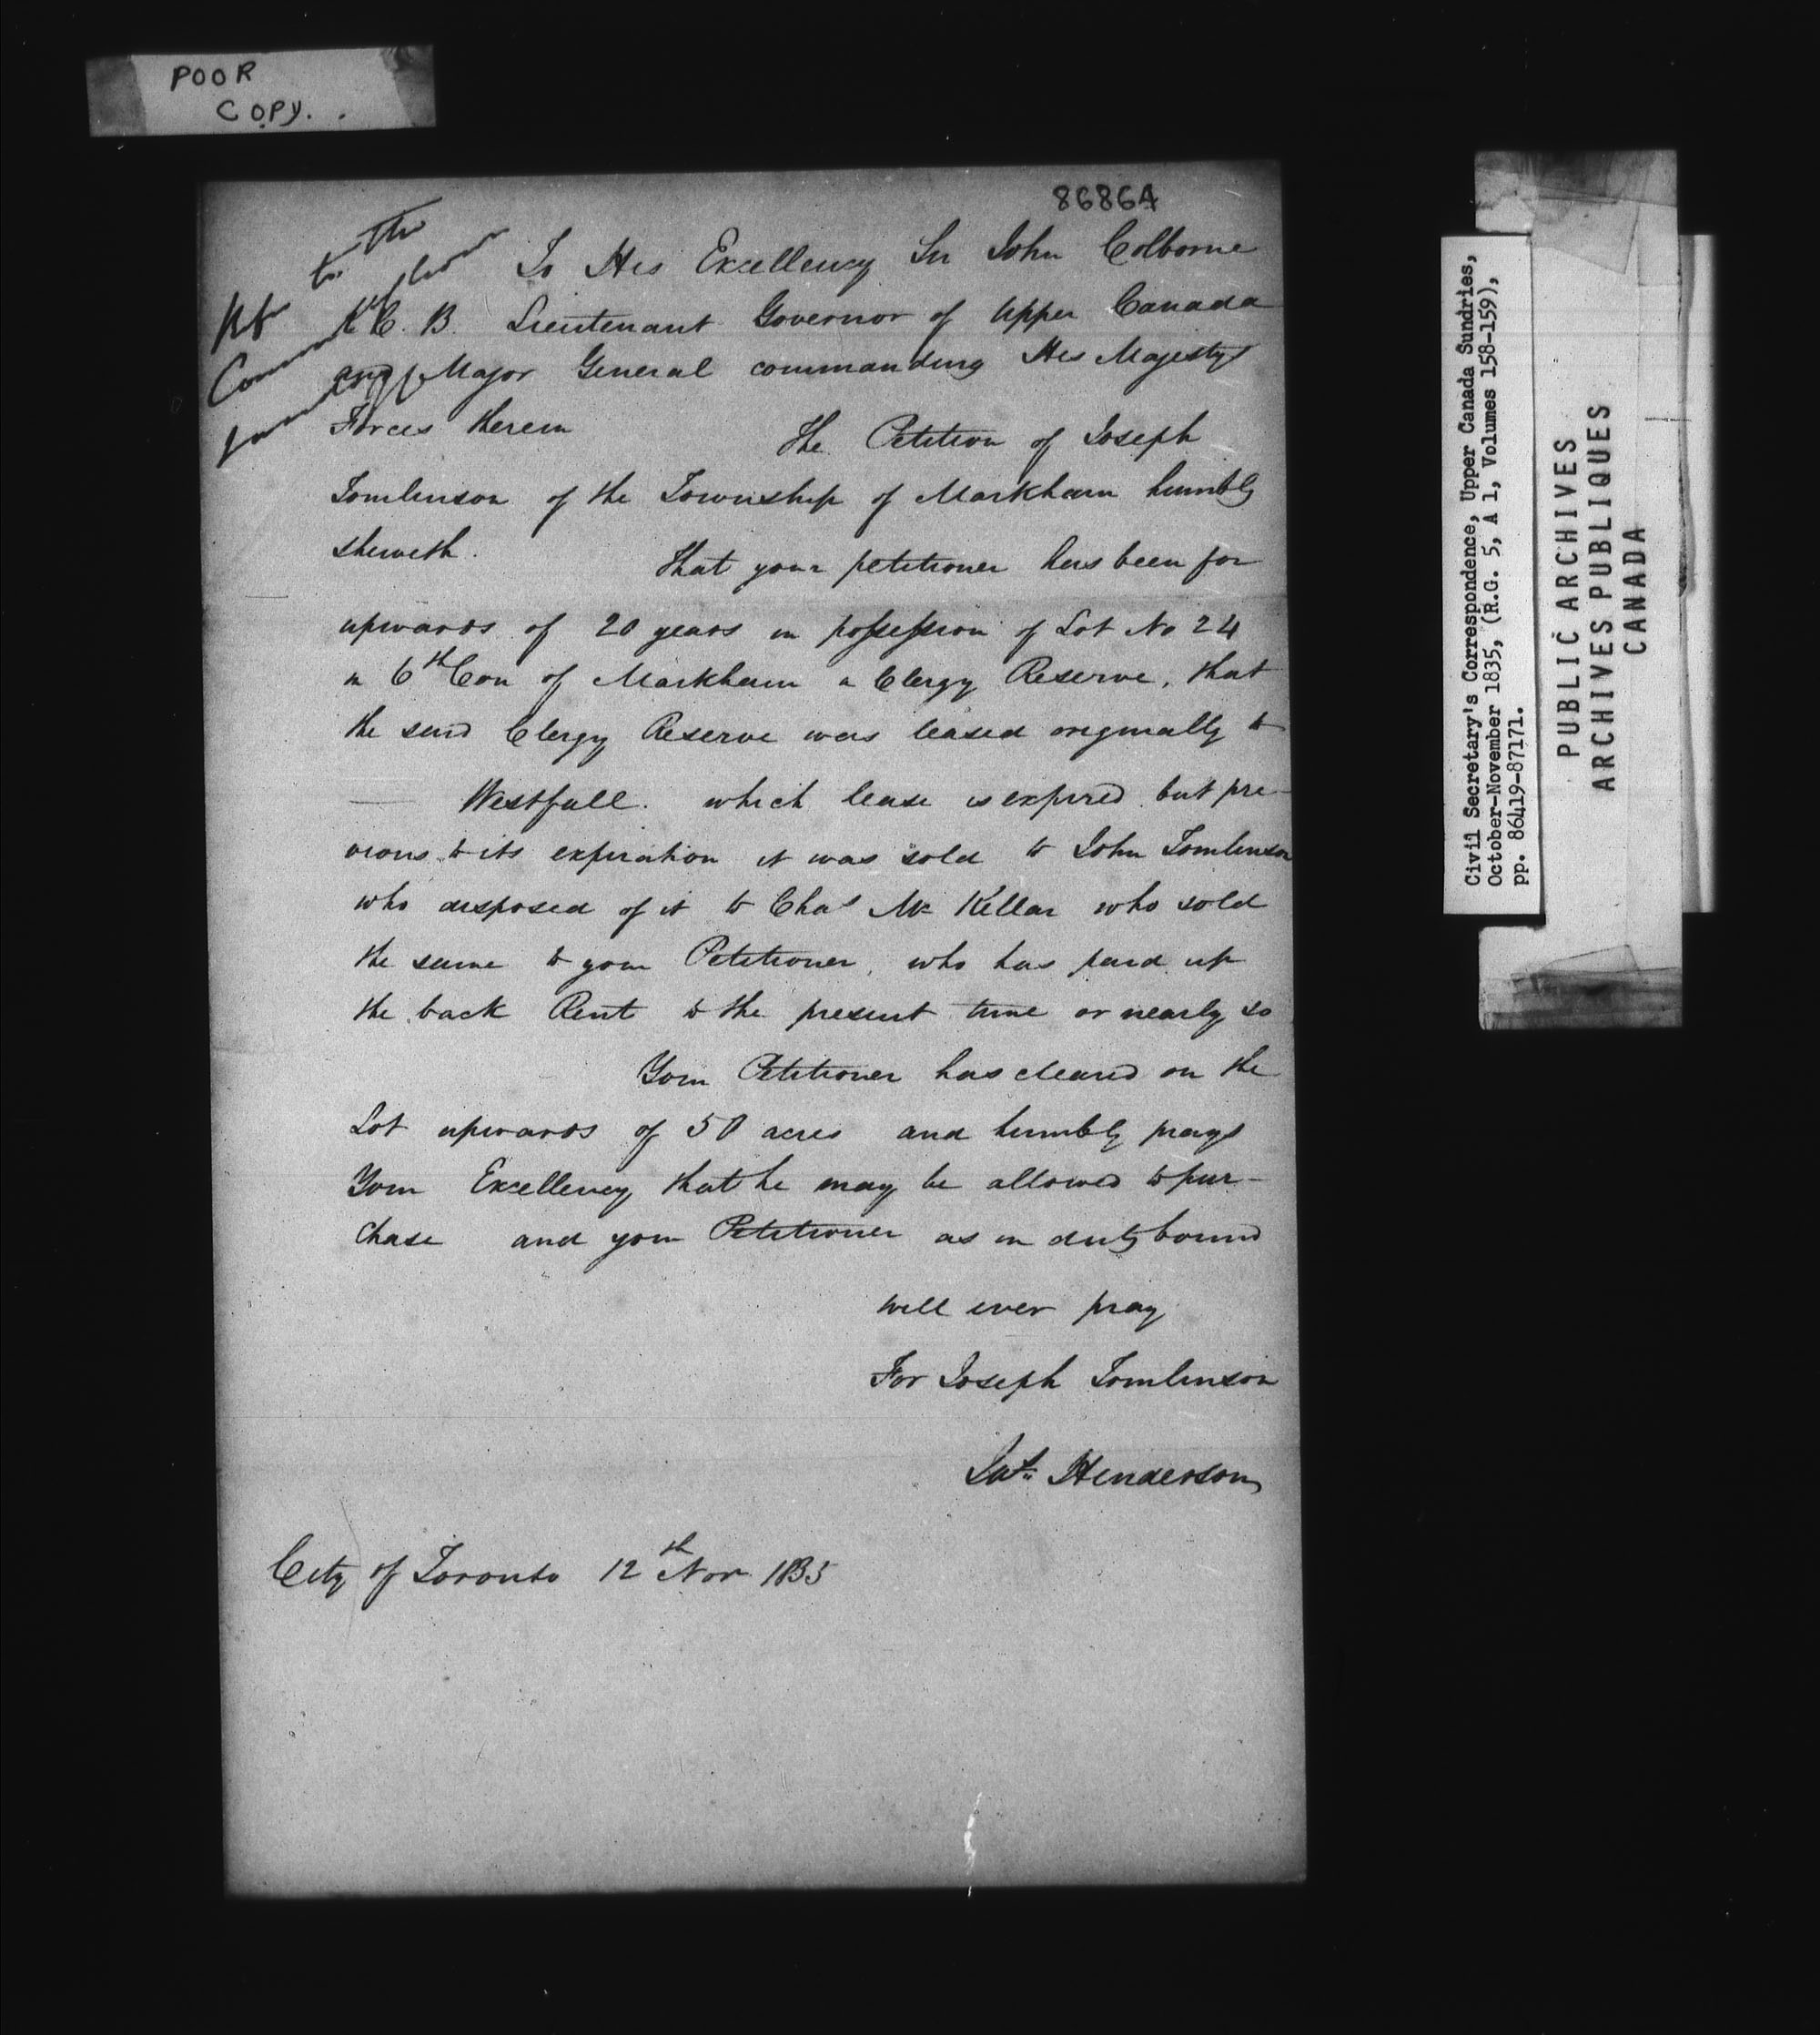 POOR
COPY.
86864
To His Excellency Sir John Colborne
K.C.B. Lieutenant Governor of Upper Canada
and Major General commanding His Majestys
Forces therein
The Petition of Joseph
Tomlinson of the Township of Markham humbly
sheweth.
That your petitioner has been for
upwards of 20 years in possession of Lot No 24
in 6th Con of Markham a Clergy Reserve, that
the said Clergy Reserve was leased originally to
—— Westfall. which lease is expired but pre-
vious to its expiration it was sold to John Tomlinson
who disposed of it to Chas Mc Kellar who sold
the same to your Petitioner, who has paid up
the back Rent to the present time or nearly so
Your Petitioner has cleared on the
Lot upwards of 50 acres and humbly prays
Your Excellency that he may be allowed to pur-
chase and your Petitioner as in duty bound
will ever pray
For Joseph Tomlinson
Jas. Henderson
City of Toronto 12th Nov 1835
to the
Civil Secretary's Correspondence, Upper Canada Sundries,
October-November 1835, (R.G. 5, A 1, Volumes 158-159),
pp. 86419-87171.
PUBLIC ARCHIVES
ARCHIVES PUBLIQUES
CANADA